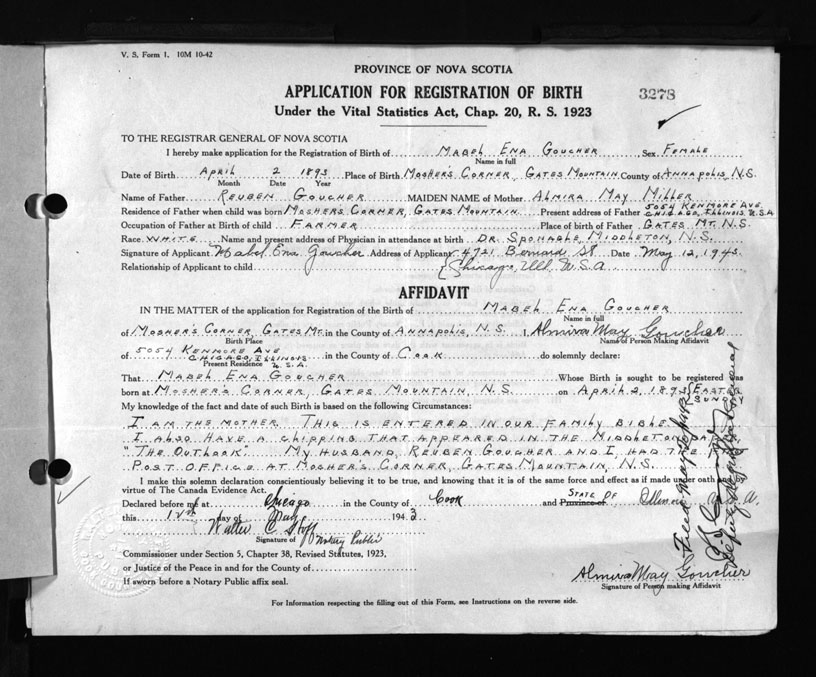 V. S. Form 1. 10M 10-42
PROVINCE OF NOVA SCOTIA
APPLICATION FOR REGISTRATION OF BIRTH
3278
Under the Vital Statistics Act, Chap. 20, R. S. 1923
TO THE REGISTRAR GENERAL OF NOVA SCOTIA
I hereby make application for the Registration of Birth of Mabel Ena Goucher Sex Female
Name in full
Date of Birth April 2 1893 Place of Birth Mosher's Corner, Gates Mountain. County of Annapolis, N.S.
Month Date Year
Name of Father Reuben Goucher MAIDEN NAME of Mother Almira May Miller
Residence of Father when child was born Mosher's Corner, Gates Mountain Present address of Father 5054 Kenmore Ave. Chicago, Illinois, U.S.A
Occupation of Father at Birth of child Farmer Place of birth of Father Gates Mt. N.S.
Race White Name and present address of Physician in attendance at birth Dr. Sponagle, Middleton, N.S.
Signature of Applicant Mabel Ena Goucher Address of Applicant 4721 Bernard St Date May 12, 1943
Relationship of Applicant to child Chicago, Ill. U.S.A
AFFIDAVIT
IN THE MATTER of the application for Registration of the Birth of Mabel Ena Goucher
Name in full
of Mosher's Corner, Gates Mt. in the County of Annapolis, N.S. I, Almira May Goucher
Birth Place Name of Person Making Affidavit
of 5054 Kenmore Ave Chicago, Illinois U.S.A. in the County of Cook do solemnly declare:
Present Residence
That Mabel Ena Goucher Whose Birth is sought to be registered was
born at Mosher's Corner, Gates Mountain, N.S. on April 2, 1893 (Easter Sunday
My knowledge of the fact and date of such Birth is based on the following Circumstances:
I am the mother. This is entered in our family Bible.
I also have a clipping that appeared in the Middleton paper
"The Outlook". My husband, Reuben Goucher and I had the
Post Office at Mosher's Corner, Gates Mountain, N.S.
I make this solemn declaration conscientiously believing it to be true, and knowing that it is of the same force and effect as if made under oath
virtue of The Canada Evidence Act.
Declared before me at Chicago in the County of Cook and Province of State of Illinois
this 12th day of May 1943
Walter C. Hoff
Signature of Notary Public
Commissioner under Section 5, Chapter 38, Revised Statutes, 1923,
or Justice of the Peace in and for the County of
If sworn before a Notary Public affix seal.
Almira May Goucher
Signature of Person making Affidavit
For Information respecting the filling out of this Form, see Instructions on the reverse side.